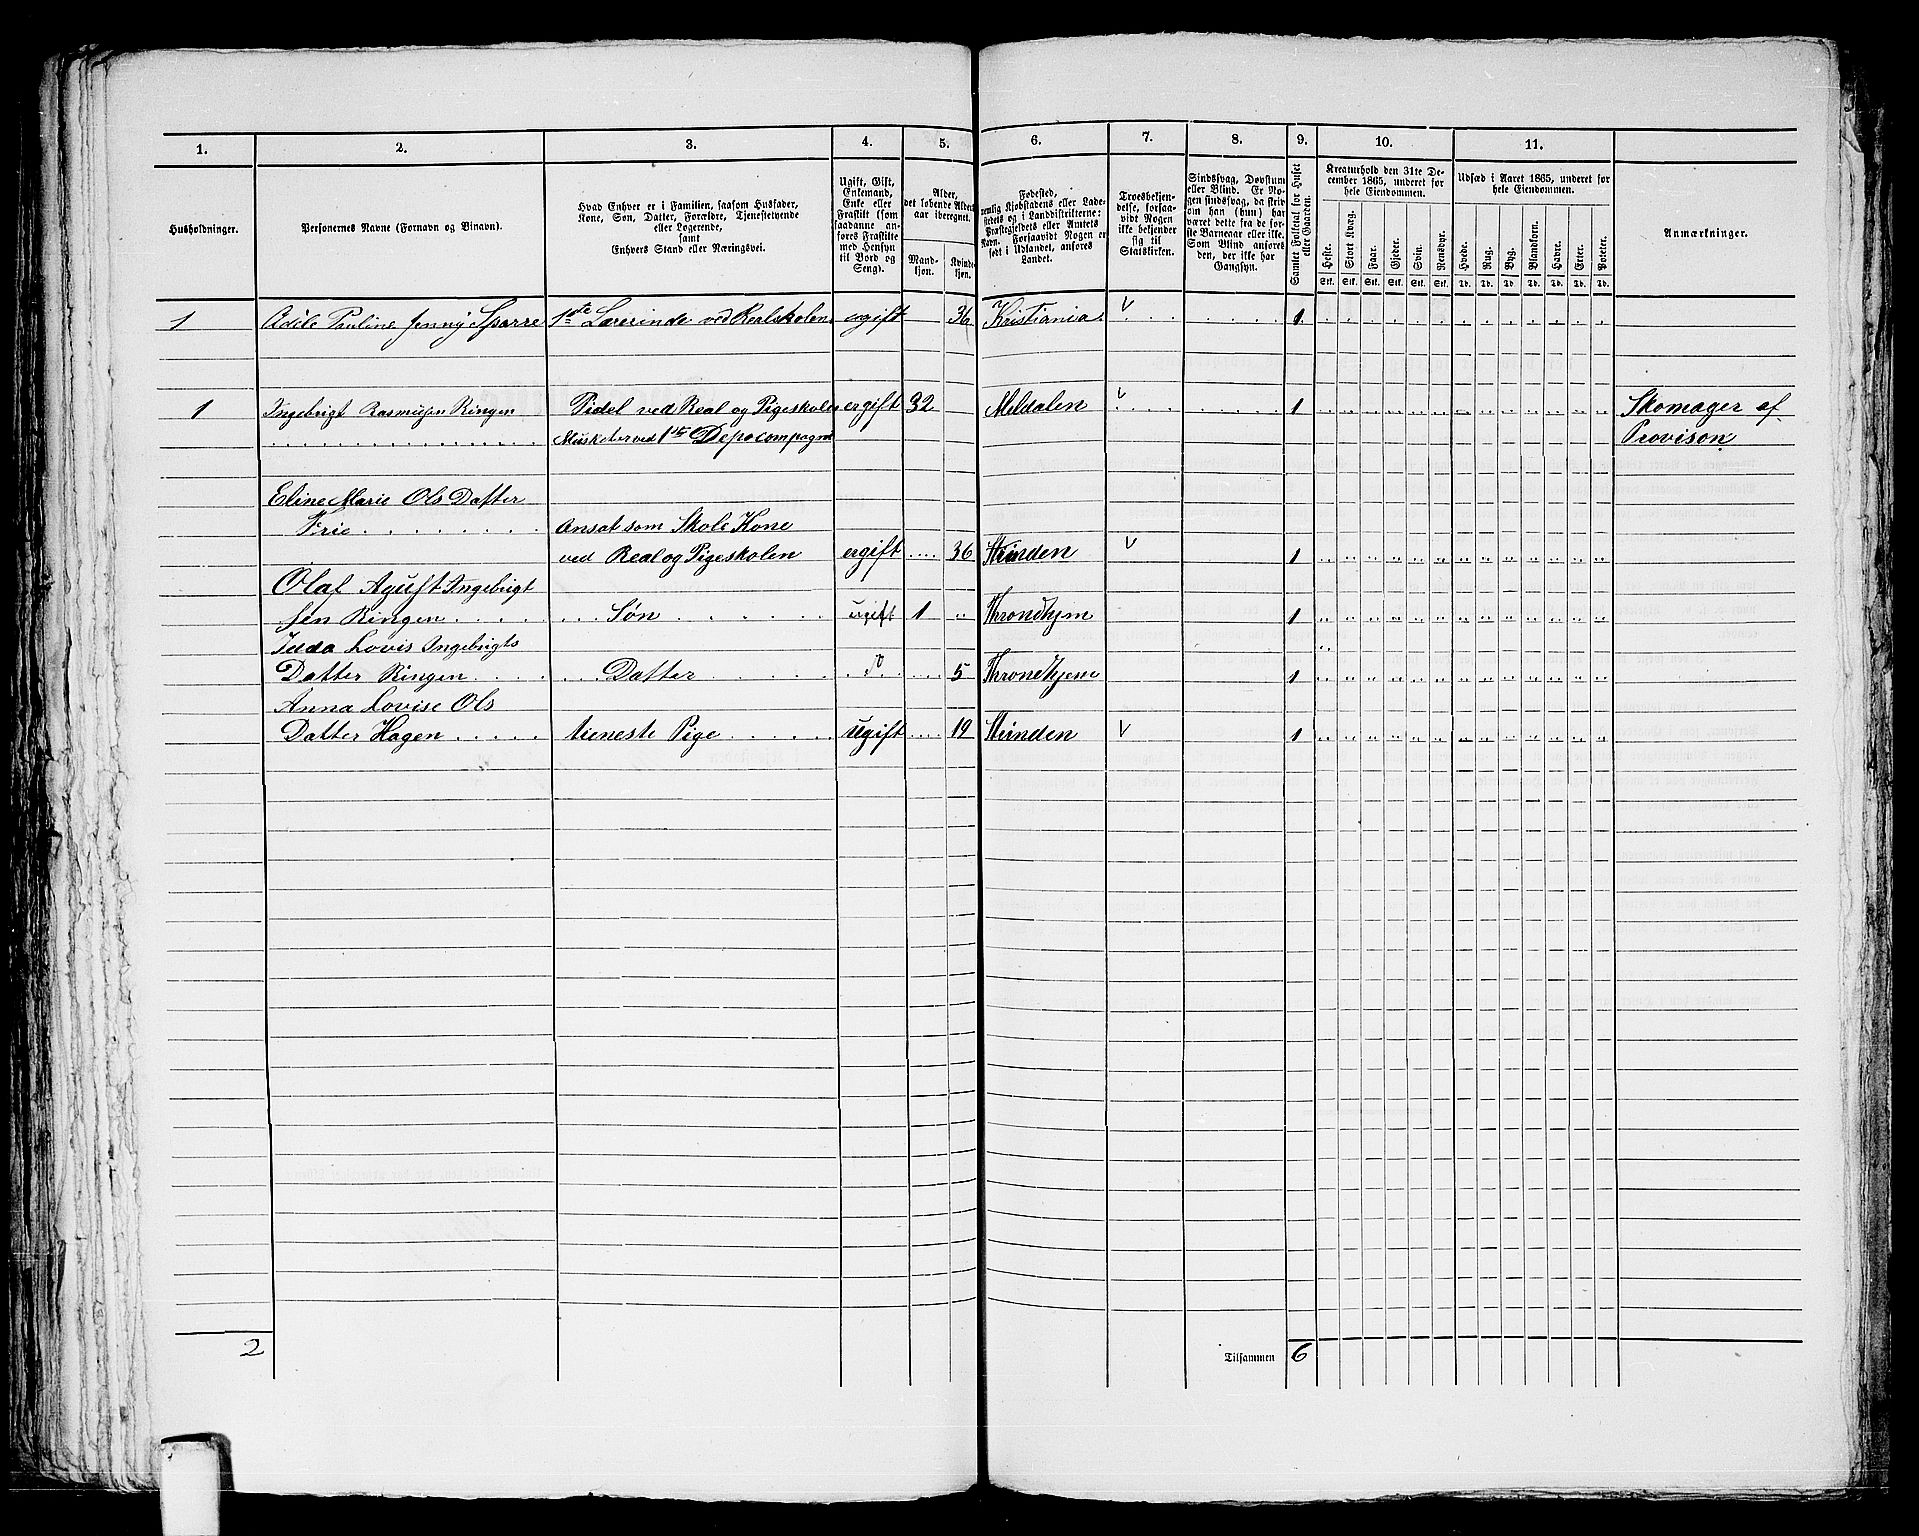 1. 2. 3. 4. 5. 6. 7. 8. 9. 10. 11.
Husholdninger.
Personernes Navne (Fornavn og Binavn).
Hvad Enhver er i Familien, saasom Husfader,
Kone, Søn, Datter, Forældre, Tjenestetyende
eller Logerende,
samt
Enhvers Stand eller Næringsvei.
Ugift, Gift,
Enkemand,
Enke eller
Fraskilt (som
saadanne an-
føres Fraskilte
med Hensyn
til Bord og
Seng).
Alder,
det løbende Alders-
aar iberegnet.
Mand-
kjøn.
Kvinde-
kjøn.
Fødested,
nemlig Kjøbstadens eller Lade-
stedets og i Landdistrikterne:
Præstegjeldets eller Amtets
Navn. Forsaavidt Nogen er
født i Udlandet, anføres
Landet.
Troesbekjen-
delse, forsaa-
vidt Nogen
ikke bekjender
sig til
Statskirken.
Sindssvag, Døvstum
eller Blind. Er No-
gen sindssvag, da skri-
ves om han (hun) har
været dette fra de før-
ste Barneaar eller ikke.
Som Blind anføres
den, der ikke har
Gangsyn.
Samlet Folketal for Huset
eller Gaarden.
Kreaturhold den 31te De-
cember 1865, underet for
hele Eiendommen.
Heste. Stort Kvæg. Faar. Gjeder. Svin. Rensdyr.
Stk. Stk. Stk. Stk. Stk. Stk.
Udsæd i Aaret 1865, underet for
hele Eiendommen.
Hvede. Rug. Byg. Blandkorn. Havre. Erter. Poteter.
Td. Td. Td. Td. Td. Td. Td.
Anmærkninger.
1 Adile Pauline Jenny Sparre 1ste Lærerinde ved Realskolen ugift 36 Kristiania 1
1 Ingebrigt Rasmusen Ringen Pidel ved Real og Pigeskolen ergift 32 Meldalen 1 Skomager af
Musketer ved 1ste Depocompagni Provison
Eline Marie Ols Datter
Frie Ansat som Skole Kone
ved Real og Pigeskolen ergift 36 Strinden 1
Olaf Agust Ingebrigt
sen Ringen Søn ugift 1 Throndhjem 1
Idda Lovis Ingebrigts
Datter Ringen Datter 5 Throndhjem 1
Anna Lovise Ols
Datter Hagen tieneste Pige ugift 19 Strinden 1
2 Tilsammen 6